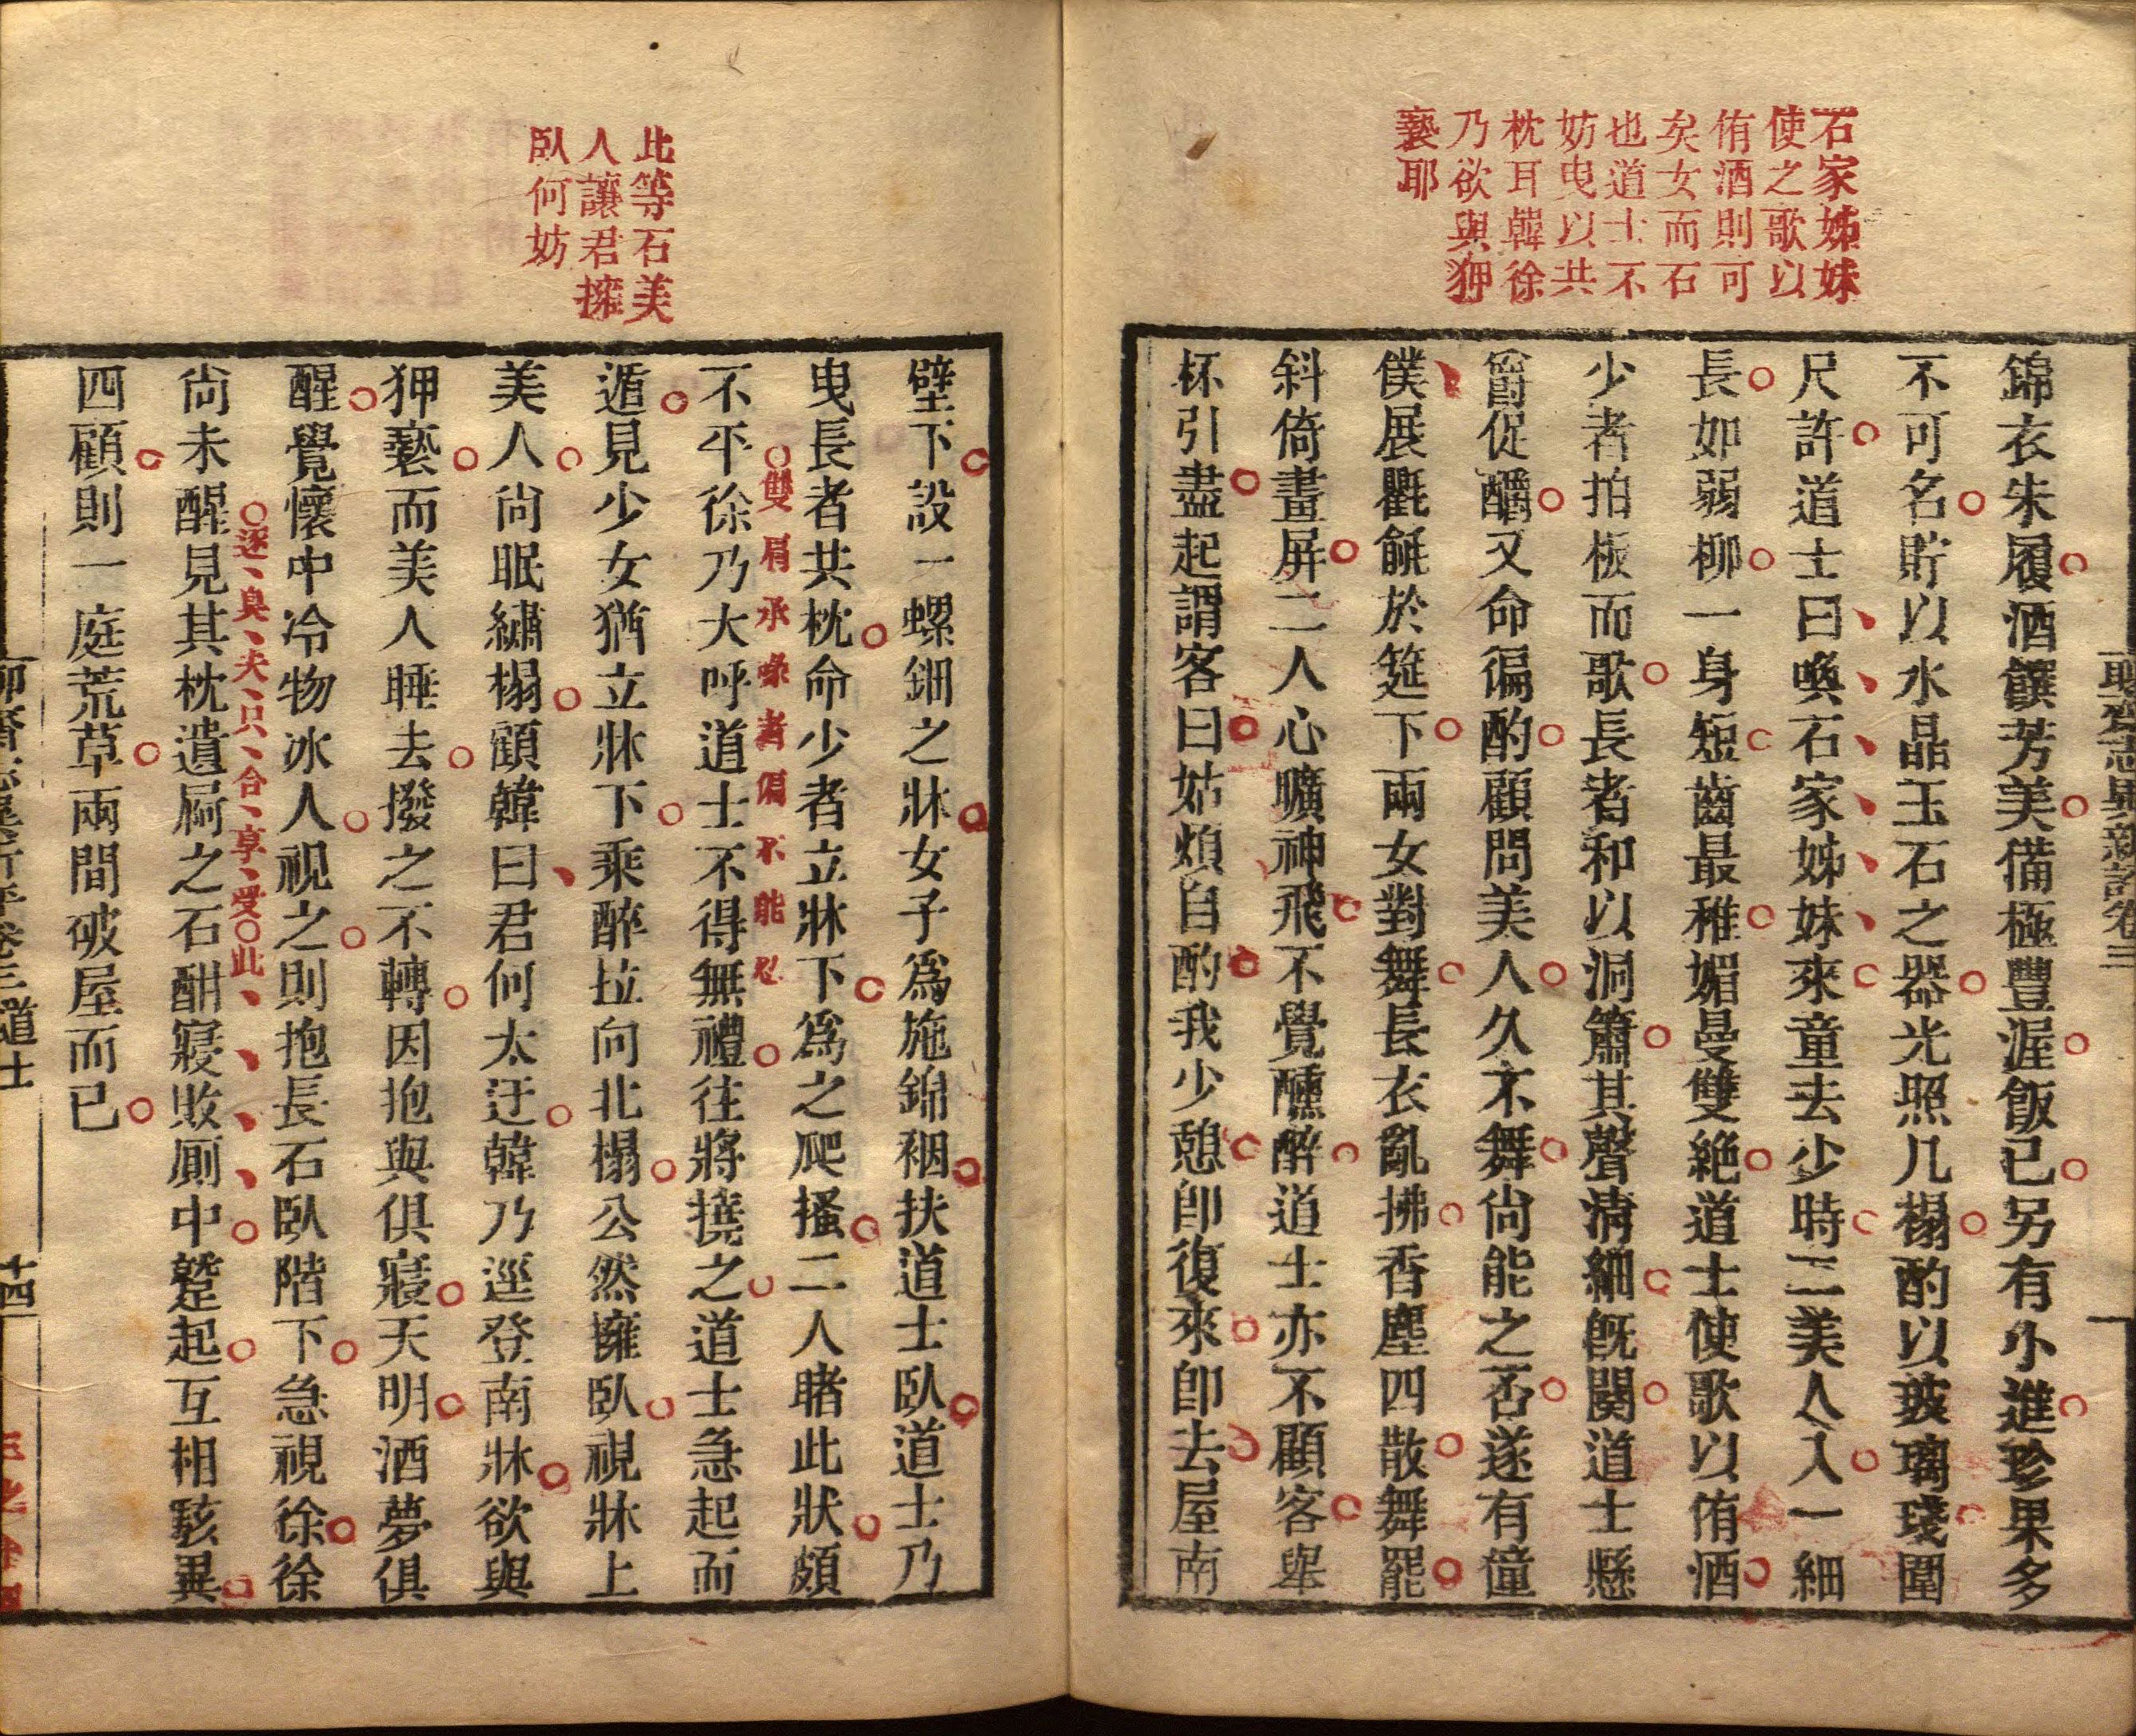 石家姊妹
使之歌以
侑酒則可
矣女而石
也道士不
妨曳以共
枕耳韓徐
乃欲與狎
褻耶
錦衣朱履酒饌芳美備極豐渥飯已另有小進珍果多
不可名貯以水晶玉石之器光照几榻酌以玻璃琖圍
尺許道士曰喚石家姊妹來童去少時二美人入一細
長如弱柳一身短齒最稚媚曼雙絶道士使歌以侑酒
少者拍板而歌長者和以洞簫其聲淸細旣闋道士懸
爵促釂又命徧酌顧問美人久不舞尙能之否遂有僮
僕展氍毹於筵下兩女對舞長衣亂拂香塵四散舞罷
斜倚畫屏二人心曠神飛不覺醺醉道士亦不顧客舉
杯引盡起謂客曰姑煩自酌我少憩卽復來卽去屋南
此等石美
人讓君擁
臥何妨
壁下設一螺鈿之牀女子爲施錦裀扶道士臥道士乃
曳長者共枕命少者立牀下爲之爬搔二人睹此狀頗
雙肩承喙者偏不能忍
不平徐乃大呼道士不得無禮往將撓之道士急起而
遁見少女猶立牀下乘醉拉向北榻公然擁臥視牀上
美人尙眠繡榻顧韓曰君何太迂韓乃逕登南牀欲與
狎褻而美人睡去撥之不轉因抱與俱寢天明酒夢俱
醒覺懷中冷物冰人視之則抱長石臥階下急視徐徐
逐臭夫只合享受此
尙未醒見其枕遺屙之石酣寢敗厠中蹵起互相駭異
四顧則一庭荒草兩間破屋而已
道士
十四